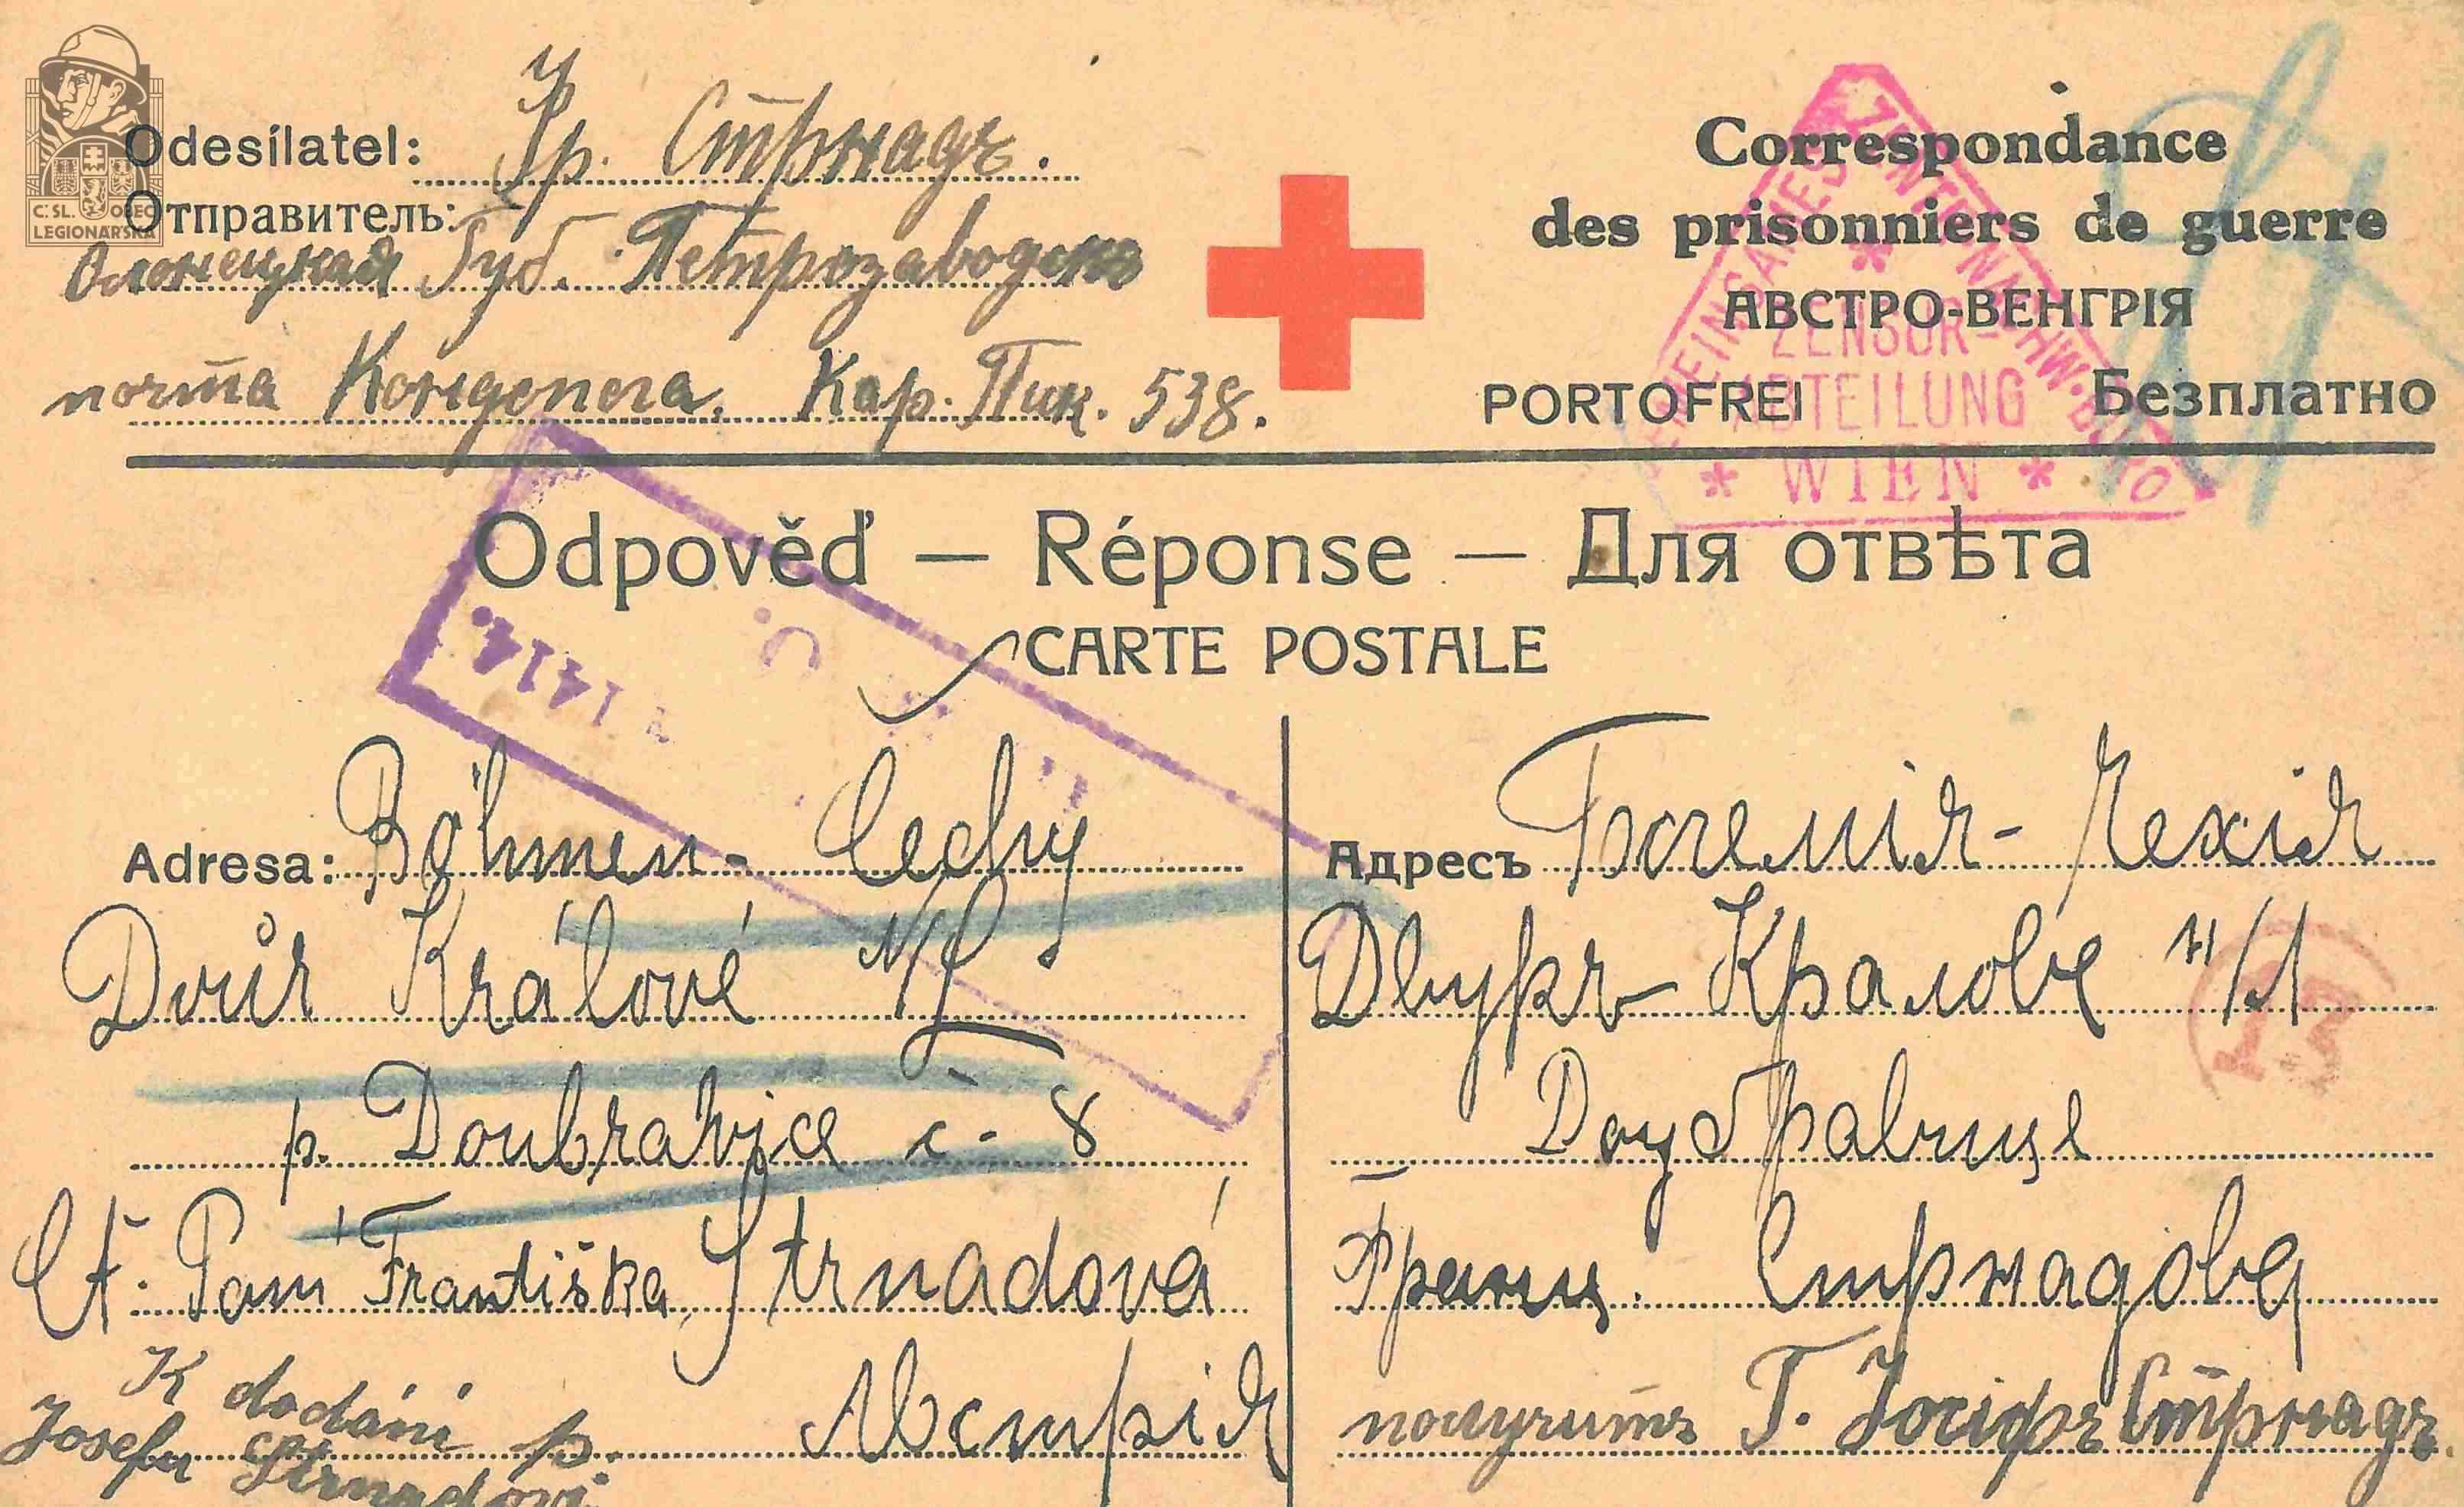 C. SL. OBEC
LEGIONÁŘSKÁ
Odesílatel: Фр. Стрнадъ.
Отправитель:
Олонецкая Губ. Петрозаводскъ
почта Кондопога. Кар. Пик. 538.
Correspondance
des prisonniers de guerre
АВСТРО-ВЕНГРІЯ
PORTOFREI Безплатно
ZENSUR-
ABTEILUNG
* WIEN *
Odpověď — Réponse — Для отвѣта
CARTE POSTALE
Adresa: Böhmen - Čechy
Dvůr Králové n/L
p. Doubravice č. 8
Ct. Paní Františka Strnadová
K dodání p.
Josefu Strnadovi.
Австрія
Адресъ Богемія - Чехія
Двуръ - Кралове н/Л
Доубравице
Франц. Стрнадова
получитъ Г. Іосифъ Стрнадъ.